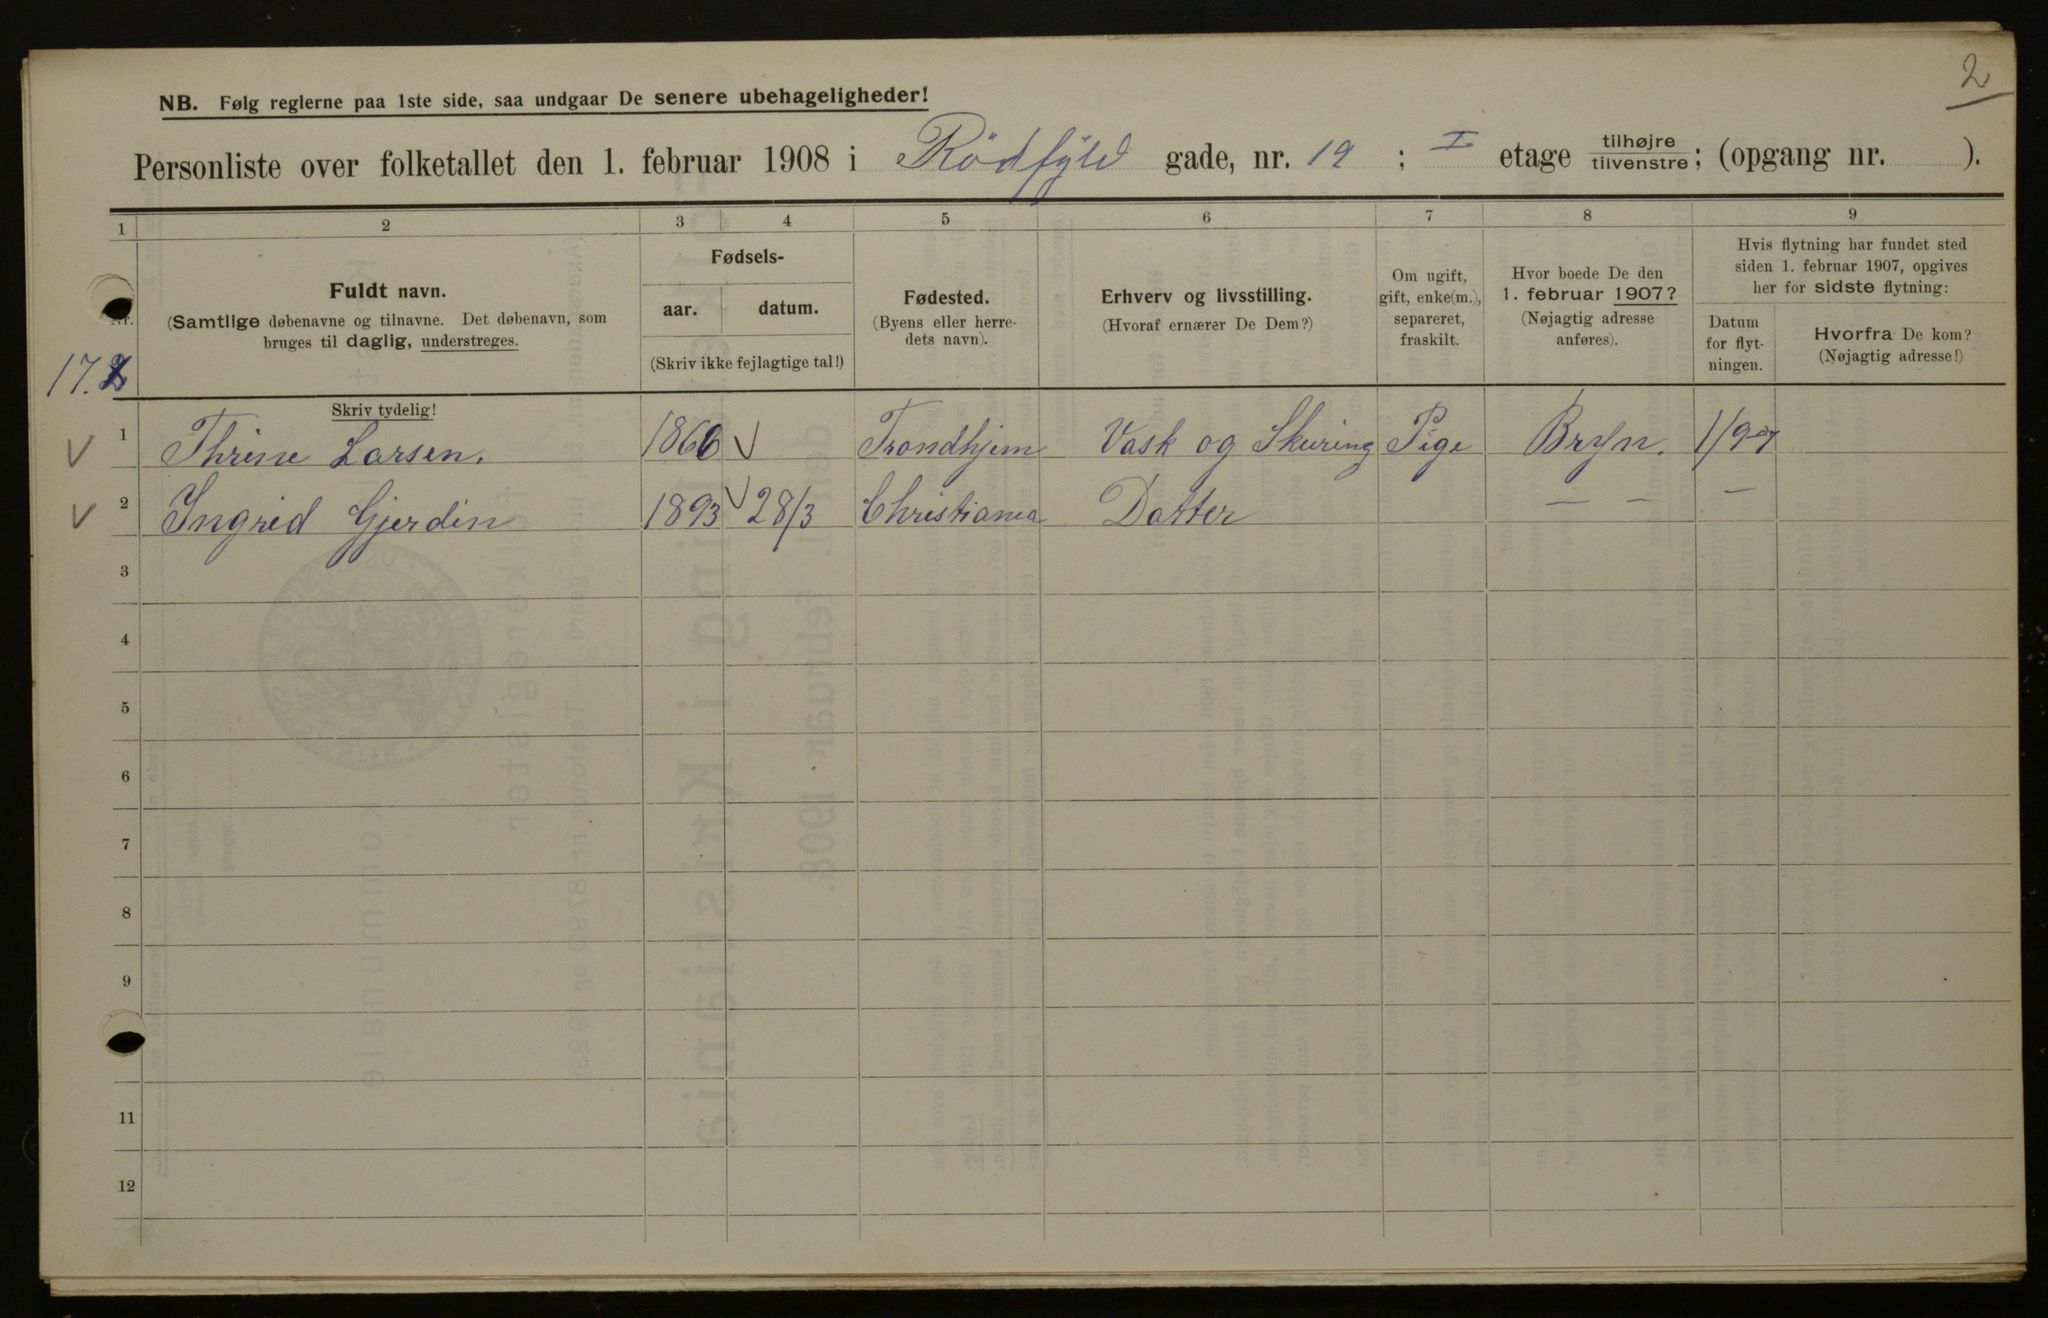 2
NB. Følg reglerne paa 1ste side, saa undgaar De senere ubehageligheder!
Personliste over folketallet den 1. februar 1908 i Rödfyld gade, nr. 19 ; I etage tilhøjre tilvenstre; (opgang nr. ).
1 2 3 4 5 6 7 8 9
Nr.
Fuldt navn.
(Samtlige døbenavne og tilnavne. Det døbenavn, som
bruges til daglig, understreges.
Fødsels-
aar. datum.
(Skriv ikke fejlagtige tal!)
Fødested.
(Byens eller herre-
dets navn).
Erhverv og livsstilling.
(Hvoraf ernærer De Dem?)
Om ugift,
gift, enke(m.),
separeret,
fraskilt.
Hvor boede De den
1. februar 1907?
(Nøjagtig adresse
anføres).
Hvis flytning har fundet sted
siden 1. februar 1907, opgives
her for sidste flytning:
Datum
for flyt-
ningen.
Hvorfra De kom?
(Nøjagtig adresse!)
Skriv tydelig!
1 Thrine Larsen. 1866 Trondhjem Vask og Skuring Pige Bryn.
2 Ingrid Gjerdin 1893 28/3 Christiania Datter — — —
3
4
5
6
7
8
9
11
12